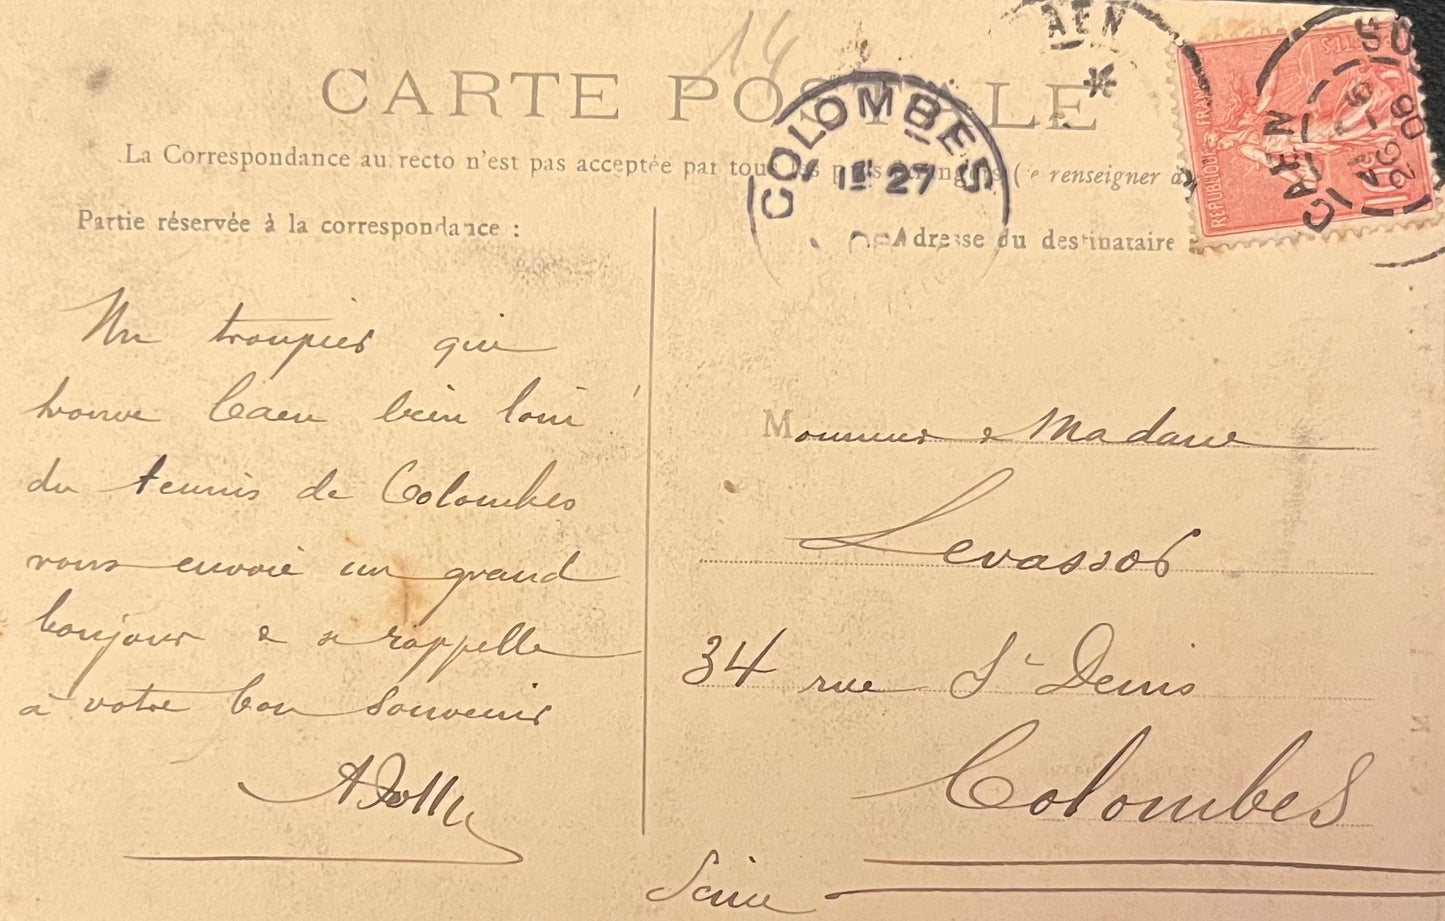 14
CARTE POSTALE
La Correspondance au recto n'est pas acceptée par tous les pays étrangers (Se renseigner à
Partie réservée à la correspondance :
Adresse du destinataire
COLOMBES
1E 27
CAEN
REPUBLIQUE FRANÇAISE
POSTES
10c
CAEN
26 - 6
06
Un troupier qui
trouve Caen bien loin
du tennis de Colombes
vous envoie un grand
bonjour & se rappelle
à votre bon souvenir
Monsieur & Madame
Levassor
34 rue St Denis
Colombes
Seine